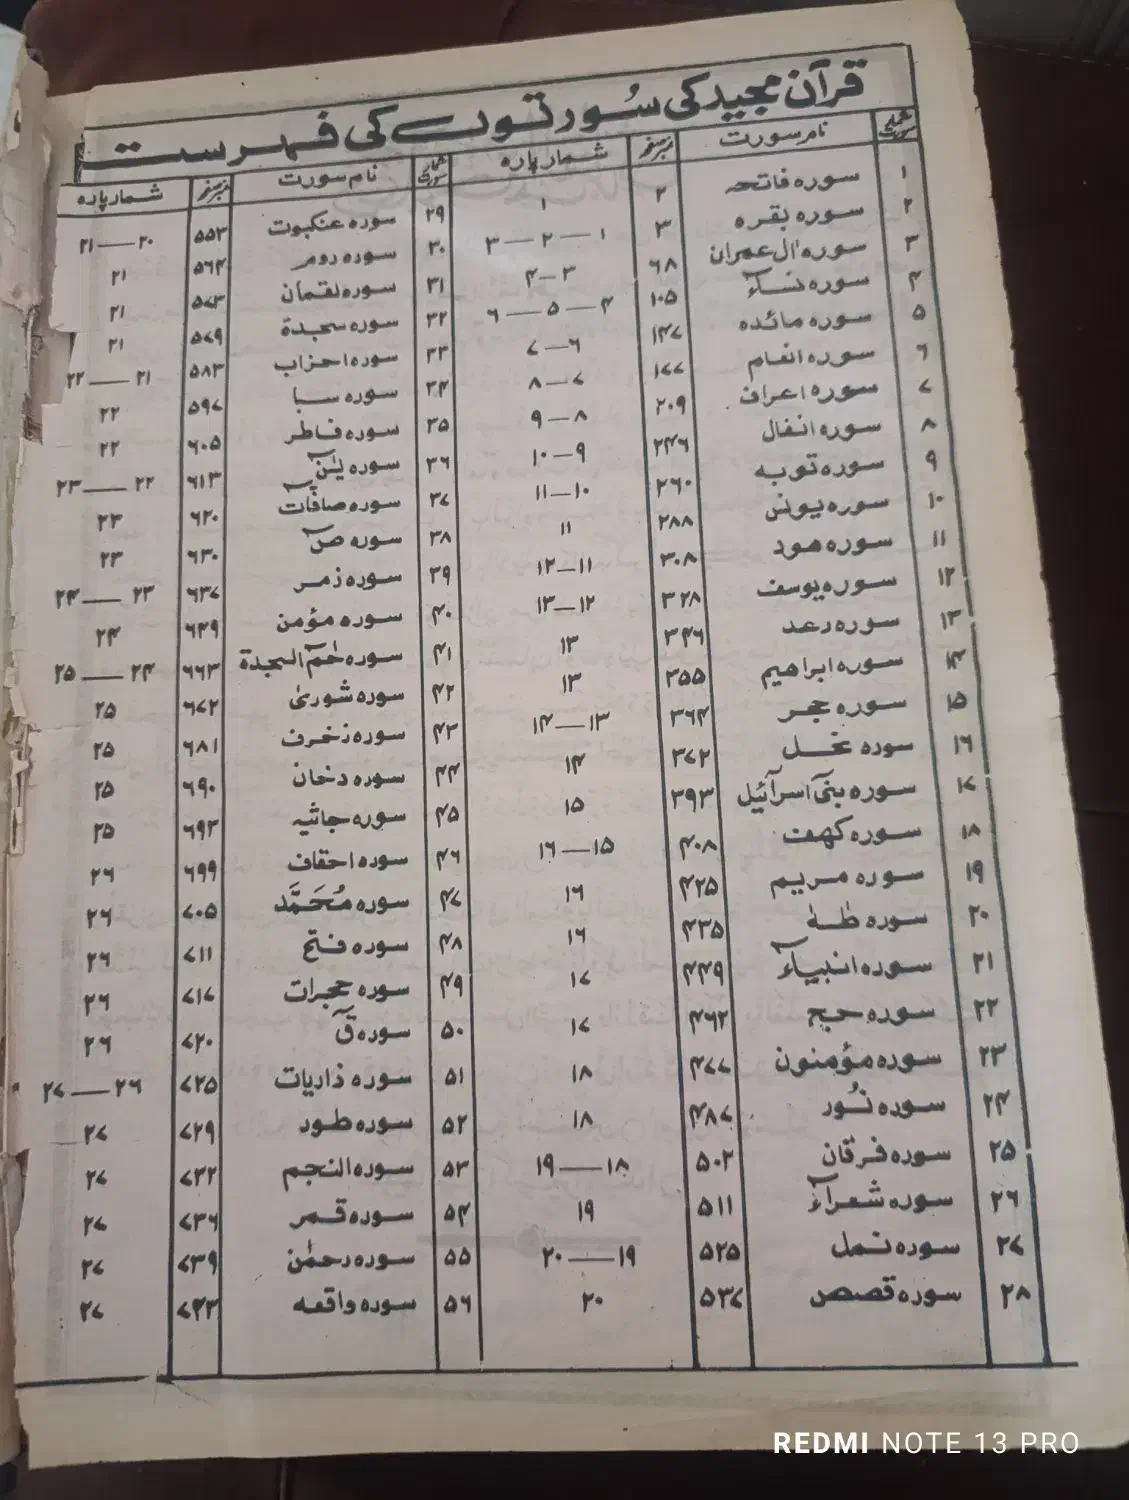 قرآن مجید کی سُورتوں کی فہرست
شمار سورت نام سورت نمبر صفحہ شمار پارہ
۱ سورہ فاتحہ ۲ ۱
۲ سورہ بقرہ ۳ ۱—۲—۳
۳ سورہ اٰل عمران ۶۸ ۳—۴
۴ سورہ نسآء ۱۰۵ ۴—۵—۶
۵ سورہ مائدہ ۱۴۷ ۶—۷
۶ سورہ انعام ۱۷۷ ۷—۸
۷ سورہ اعراف ۲۰۹ ۸—۹
۸ سورہ انفال ۲۴۶ ۹—۱۰
۹ سورہ توبہ ۲۶۰ ۱۰—۱۱
۱۰ سورہ یونس ۲۸۸ ۱۱
۱۱ سورہ ھود ۳۰۸ ۱۱—۱۲
۱۲ سورہ یوسف ۳۲۸ ۱۲—۱۳
۱۳ سورہ رعد ۳۴۶ ۱۳
۱۴ سورہ ابراھیم ۳۵۵ ۱۳
۱۵ سورہ حجر ۳۶۴ ۱۳—۱۴
۱۶ سورہ نحل ۳۷۲ ۱۴
۱۷ سورہ بنیٓ اسرآئیل ۳۹۳ ۱۵
۱۸ سورہ کھف ۴۰۸ ۱۵—۱۶
۱۹ سورہ مریم ۴۲۵ ۱۶
۲۰ سورہ طٰہٰ ۴۳۵ ۱۶
۲۱ سورہ انبیآء ۴۴۹ ۱۷
۲۲ سورہ حج ۴۶۲ ۱۷
۲۳ سورہ مؤمنون ۴۷۷ ۱۸
۲۴ سورہ نُور ۴۸۷ ۱۸
۲۵ سورہ فرقان ۵۰۲ ۱۸—۱۹
۲۶ سورہ شعرآء ۵۱۱ ۱۹
۲۷ سورہ نمل ۵۲۵ ۱۹—۲۰
۲۸ سورہ قصص ۵۳۷ ۲۰
شمار سورت نام سورت نمبر صفحہ شمار پارہ
۲۹ سورہ عنکبوت ۵۵۳ ۲۰—۲۱
۳۰ سورہ روم ۵۶۴ ۲۱
۳۱ سورہ لقمان ۵۷۳ ۲۱
۳۲ سورہ سجدة ۵۷۹ ۲۱
۳۳ سورہ احزاب ۵۸۳ ۲۱—۲۲
۳۴ سورہ سبا ۵۹۷ ۲۲
۳۵ سورہ فاطر ۶۰۵ ۲۲
۳۶ سورہ یٰسٓ ۶۱۳ ۲۲—۲۳
۳۷ سورہ صافات ۶۲۰ ۲۳
۳۸ سورہ صٓ ۶۳۰ ۲۳
۳۹ سورہ زمر ۶۳۷ ۲۳—۲۴
۴۰ سورہ مؤمن ۶۴۹ ۲۴
۴۱ سورہ حٰمٓ السجدة ۶۶۳ ۲۴—۲۵
۴۲ سورہ شوریٰ ۶۷۲ ۲۵
۴۳ سورہ زخرف ۶۸۱ ۲۵
۴۴ سورہ دخان ۶۹۰ ۲۵
۴۵ سورہ جاثیہ ۶۹۳ ۲۵
۴۶ سورہ احقاف ۶۹۹ ۲۶
۴۷ سورہ مُحَمَّد ۷۰۵ ۲۶
۴۸ سورہ فتح ۷۱۱ ۲۶
۴۹ سورہ حجرات ۷۱۷ ۲۶
۵۰ سورہ قٓ ۷۲۰ ۲۶
۵۱ سورہ ذاریات ۷۲۵ ۲۶—۲۷
۵۲ سورہ طود ۷۲۹ ۲۷
۵۳ سورہ النجم ۷۳۲ ۲۷
۵۴ سورہ قمر ۷۳۶ ۲۷
۵۵ سورہ رحمٰن ۷۳۹ ۲۷
۵۶ سورہ واقعہ ۷۴۳ ۲۷
REDMI NOTE 13 PRO